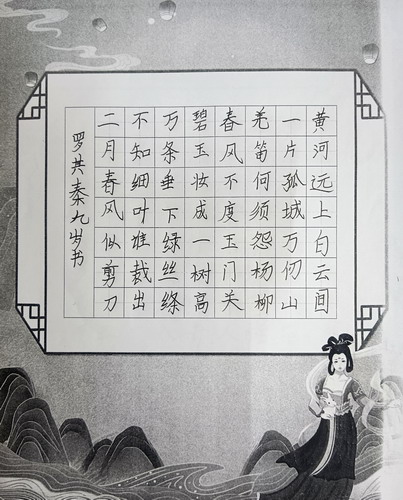 黄河远上白云间
一片孤城万仞山
羌笛何须怨杨柳
春风不度玉门关
碧玉妆成一树高
万条垂下绿丝绦
不知细叶谁裁出
二月春风似剪刀
罗共秦九岁书